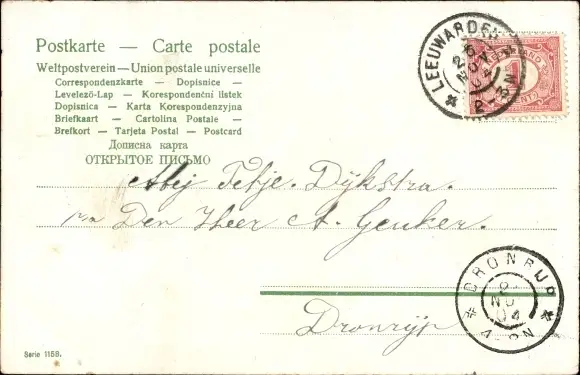 Postkarte — Carte postale
Weltpostverein — Union postale universelle
Correspondenzkarte — Dopisnice —
Levelező-Lap — Korespondenční listek
Dopisnica — Karta Korespondenzyjna
Briefkaart — Cartolina Postale —
Brefkort — Tarjeta Postal — Postcard
Дописна карта
ОТКРЫТОЕ ПИСЬМО
LEEUWARDEN
NOV
04
CENT
Tetje. Dijkstra.
Den Heer A. Genker.
DRONRIJP
NO
04
4-8N
Dronrijp
Serie 1159.